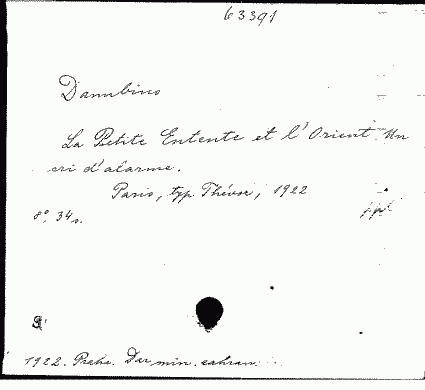 63391
Danubius
La Petite Entente et l'Orient. Un
cri d'alarme.
Paris, typ. Thévoz, 1922
8° 34 s.
1922. Praha. Dar min. zahran.